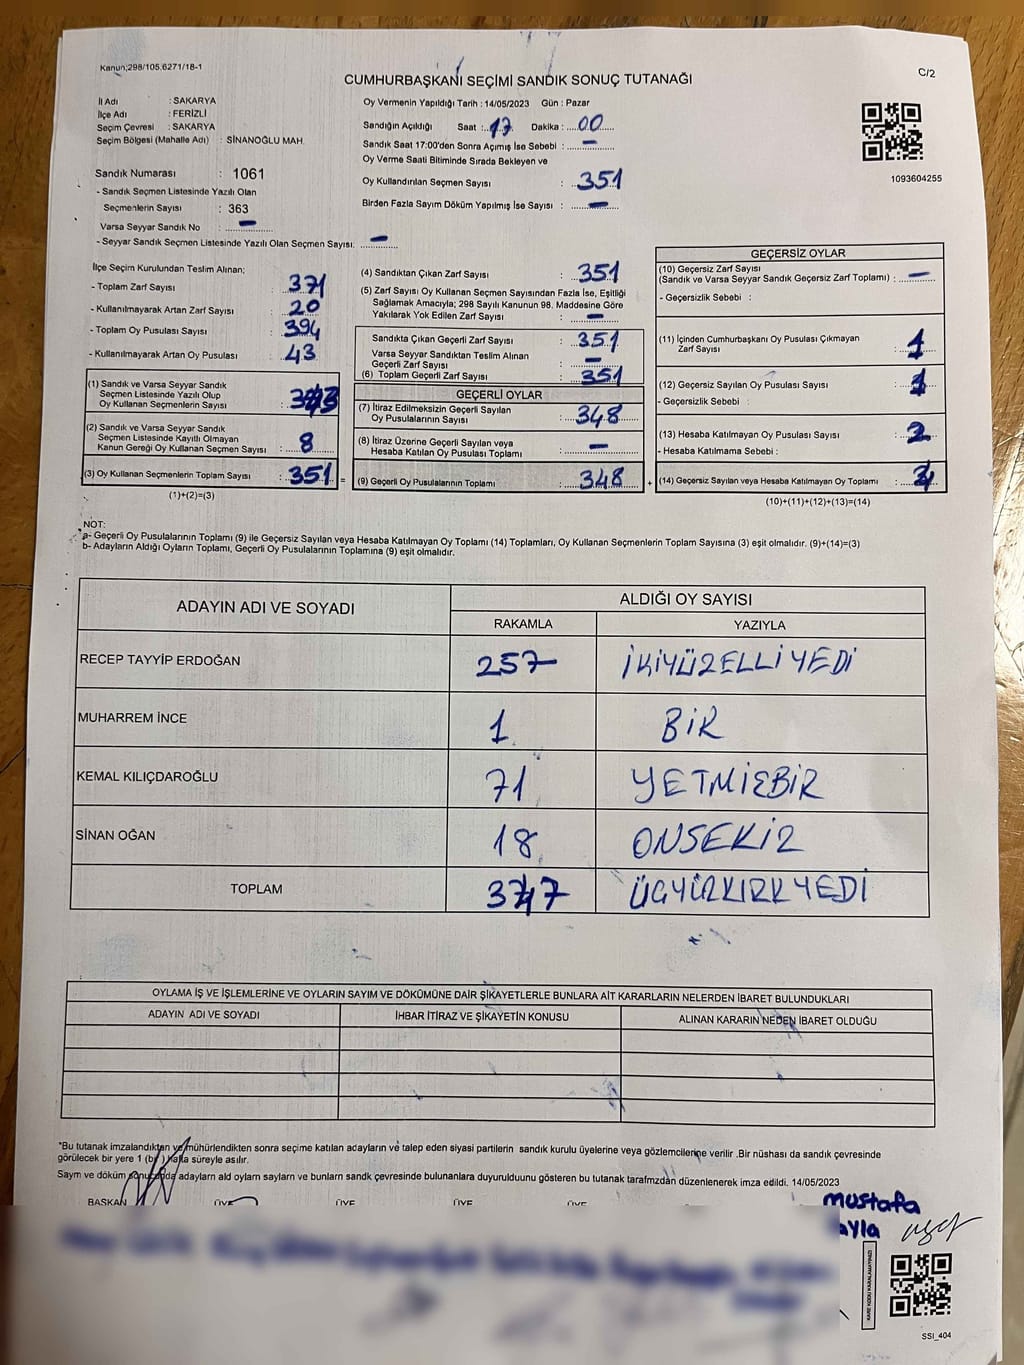 Kanun;298/105.6271/18-1
C/2
CUMHURBAŞKANI SEÇİMİ SANDIK SONUÇ TUTANAĞI
İl Adı : SAKARYA
İlçe Adı : FERİZLİ
Seçim Çevresi : SAKARYA
Seçim Bölgesi (Mahalle Adı) SİNANOĞLU MAH.
Sandık Numarası : 1061
- Sandık Seçmen Listesinde Yazılı Olan
Seçmenlerin Sayısı : 363
Varsa Seyyar Sandık No : —
- Seyyar Sandık Seçmen Listesinde Yazılı Olan Seçmen Sayısı: —
Oy Vermenin Yapıldığı Tarih : 14/05/2023 Gün : Pazar
Sandığın Açıldığı Saat : 17 Dakika : 00
Sandık Saat 17:00'den Sonra Açımış İse Sebebi : —
Oy Verme Saati Bitiminde Sırada Bekleyen ve
Oy Kullandırılan Seçmen Sayısı : 351
Birden Fazla Sayım Döküm Yapılmış İse Sayısı : —
1093604255
İlçe Seçim Kurulundan Teslim Alınan;
- Toplam Zarf Sayısı : 371
- Kullanılmayarak Artan Zarf Sayısı : 20
- Toplam Oy Pusulası Sayısı : 394
- Kullanılmayarak Artan Oy Pusulası : 43
(1) Sandık ve Varsa Seyyar Sandık
Seçmen Listesinde Yazılı Olup
Oy Kullanan Seçmenlerin Sayısı : 343
(2) Sandık ve Varsa Seyyar Sandık
Seçmen Listesinde Kayıtlı Olmayan
Kanun Gereği Oy Kullanan Seçmen Sayısı : 8
(3) Oy Kullanan Seçmenlerin Toplam Sayısı : 351 =
(1)+(2)=(3)
(4) Sandıktan Çıkan Zarf Sayısı : 351
(5) Zarf Sayısı Oy Kullanan Seçmen Sayısından Fazla İse, Eşitliği
Sağlamak Amacıyla; 298 Sayılı Kanunun 98. Maddesine Göre
Yakılarak Yok Edilen Zarf Sayısı : —
Sandıkta Çıkan Geçerli Zarf Sayısı : 351
Varsa Seyyar Sandıktan Teslim Alınan
Geçerli Zarf Sayısı : —
(6) Toplam Geçerli Zarf Sayısı : 351
GEÇERLİ OYLAR
(7) İtiraz Edilmeksizin Geçerli Sayılan
Oy Pusulalarının Sayısı : 348
(8) İtiraz Üzerine Geçerli Sayılan veya
Hesaba Katılan Oy Pusulası Toplamı : —
(9) Geçerli Oy Pusulalarının Toplamı : 348 +
GEÇERSİZ OYLAR
(10) Geçersiz Zarf Sayısı
(Sandık ve Varsa Seyyar Sandık Geçersiz Zarf Toplamı) : —
- Geçersizlik Sebebi :
(11) İçinden Cumhurbaşkanı Oy Pusulası Çıkmayan
Zarf Sayısı : 1
(12) Geçersiz Sayılan Oy Pusulası Sayısı : 1
- Geçersizlik Sebebi :
(13) Hesaba Katılmayan Oy Pusulası Sayısı : 2
- Hesaba Katılmama Sebebi :
(14) Geçersiz Sayılan veya Hesaba Katılmayan Oy Toplamı :
(10)+(11)+(12)+(13)=(14)
NOT:
a- Geçerli Oy Pusulalarının Toplamı (9) ile Geçersiz Sayılan veya Hesaba Katılmayan Oy Toplamı (14) Toplamları, Oy Kullanan Seçmenlerin Toplam Sayısına (3) eşit olmalıdır. (9)+(14)=(3)
b- Adayların Aldığı Oyların Toplamı, Geçerli Oy Pusulalarının Toplamına (9) eşit olmalıdır.
ADAYIN ADI VE SOYADI ALDIĞI OY SAYISI
RAKAMLA YAZIYLA
RECEP TAYYİP ERDOĞAN 257 İKİYÜZELLİYEDİ
MUHARREM İNCE 1 BİR
KEMAL KILIÇDAROĞLU 71 YETMİŞBİR
SİNAN OĞAN 18 ONSEKİZ
TOPLAM 347 ÜÇYÜZKIRKYEDİ
OYLAMA İŞ VE İŞLEMLERİNE VE OYLARIN SAYIM VE DÖKÜMÜNE DAİR ŞİKAYETLERLE BUNLARA AİT KARARLARIN NELERDEN İBARET BULUNDUKLARI
ADAYIN ADI VE SOYADI İHBAR İTİRAZ VE ŞİKAYETİN KONUSU ALINAN KARARIN NEDEN İBARET OLDUĞU
*Bu tutanak imzalandıktan ve mühürlendikten sonra seçime katılan adayların ve talep eden siyasi partilerin sandık kurulu üyelerine veya gözlemcilerine verilir .Bir nüshası da sandık çevresinde
görülecek bir yere 1 (bir) hafta süreyle asılır.
Sayım ve döküm sonucunda adayların ald oyların sayları ve bunların sandk çevresinde bulunanlara duyurulduunu gösteren bu tutanak tarafmzdan düzenlenerek imza edildi. 14/05/2023
BAŞKAN ÜYE ÜYE ÜYE ÜYE
mustafa
ayla
KARE KODU KARALAMAYINIZ!
SSI_404